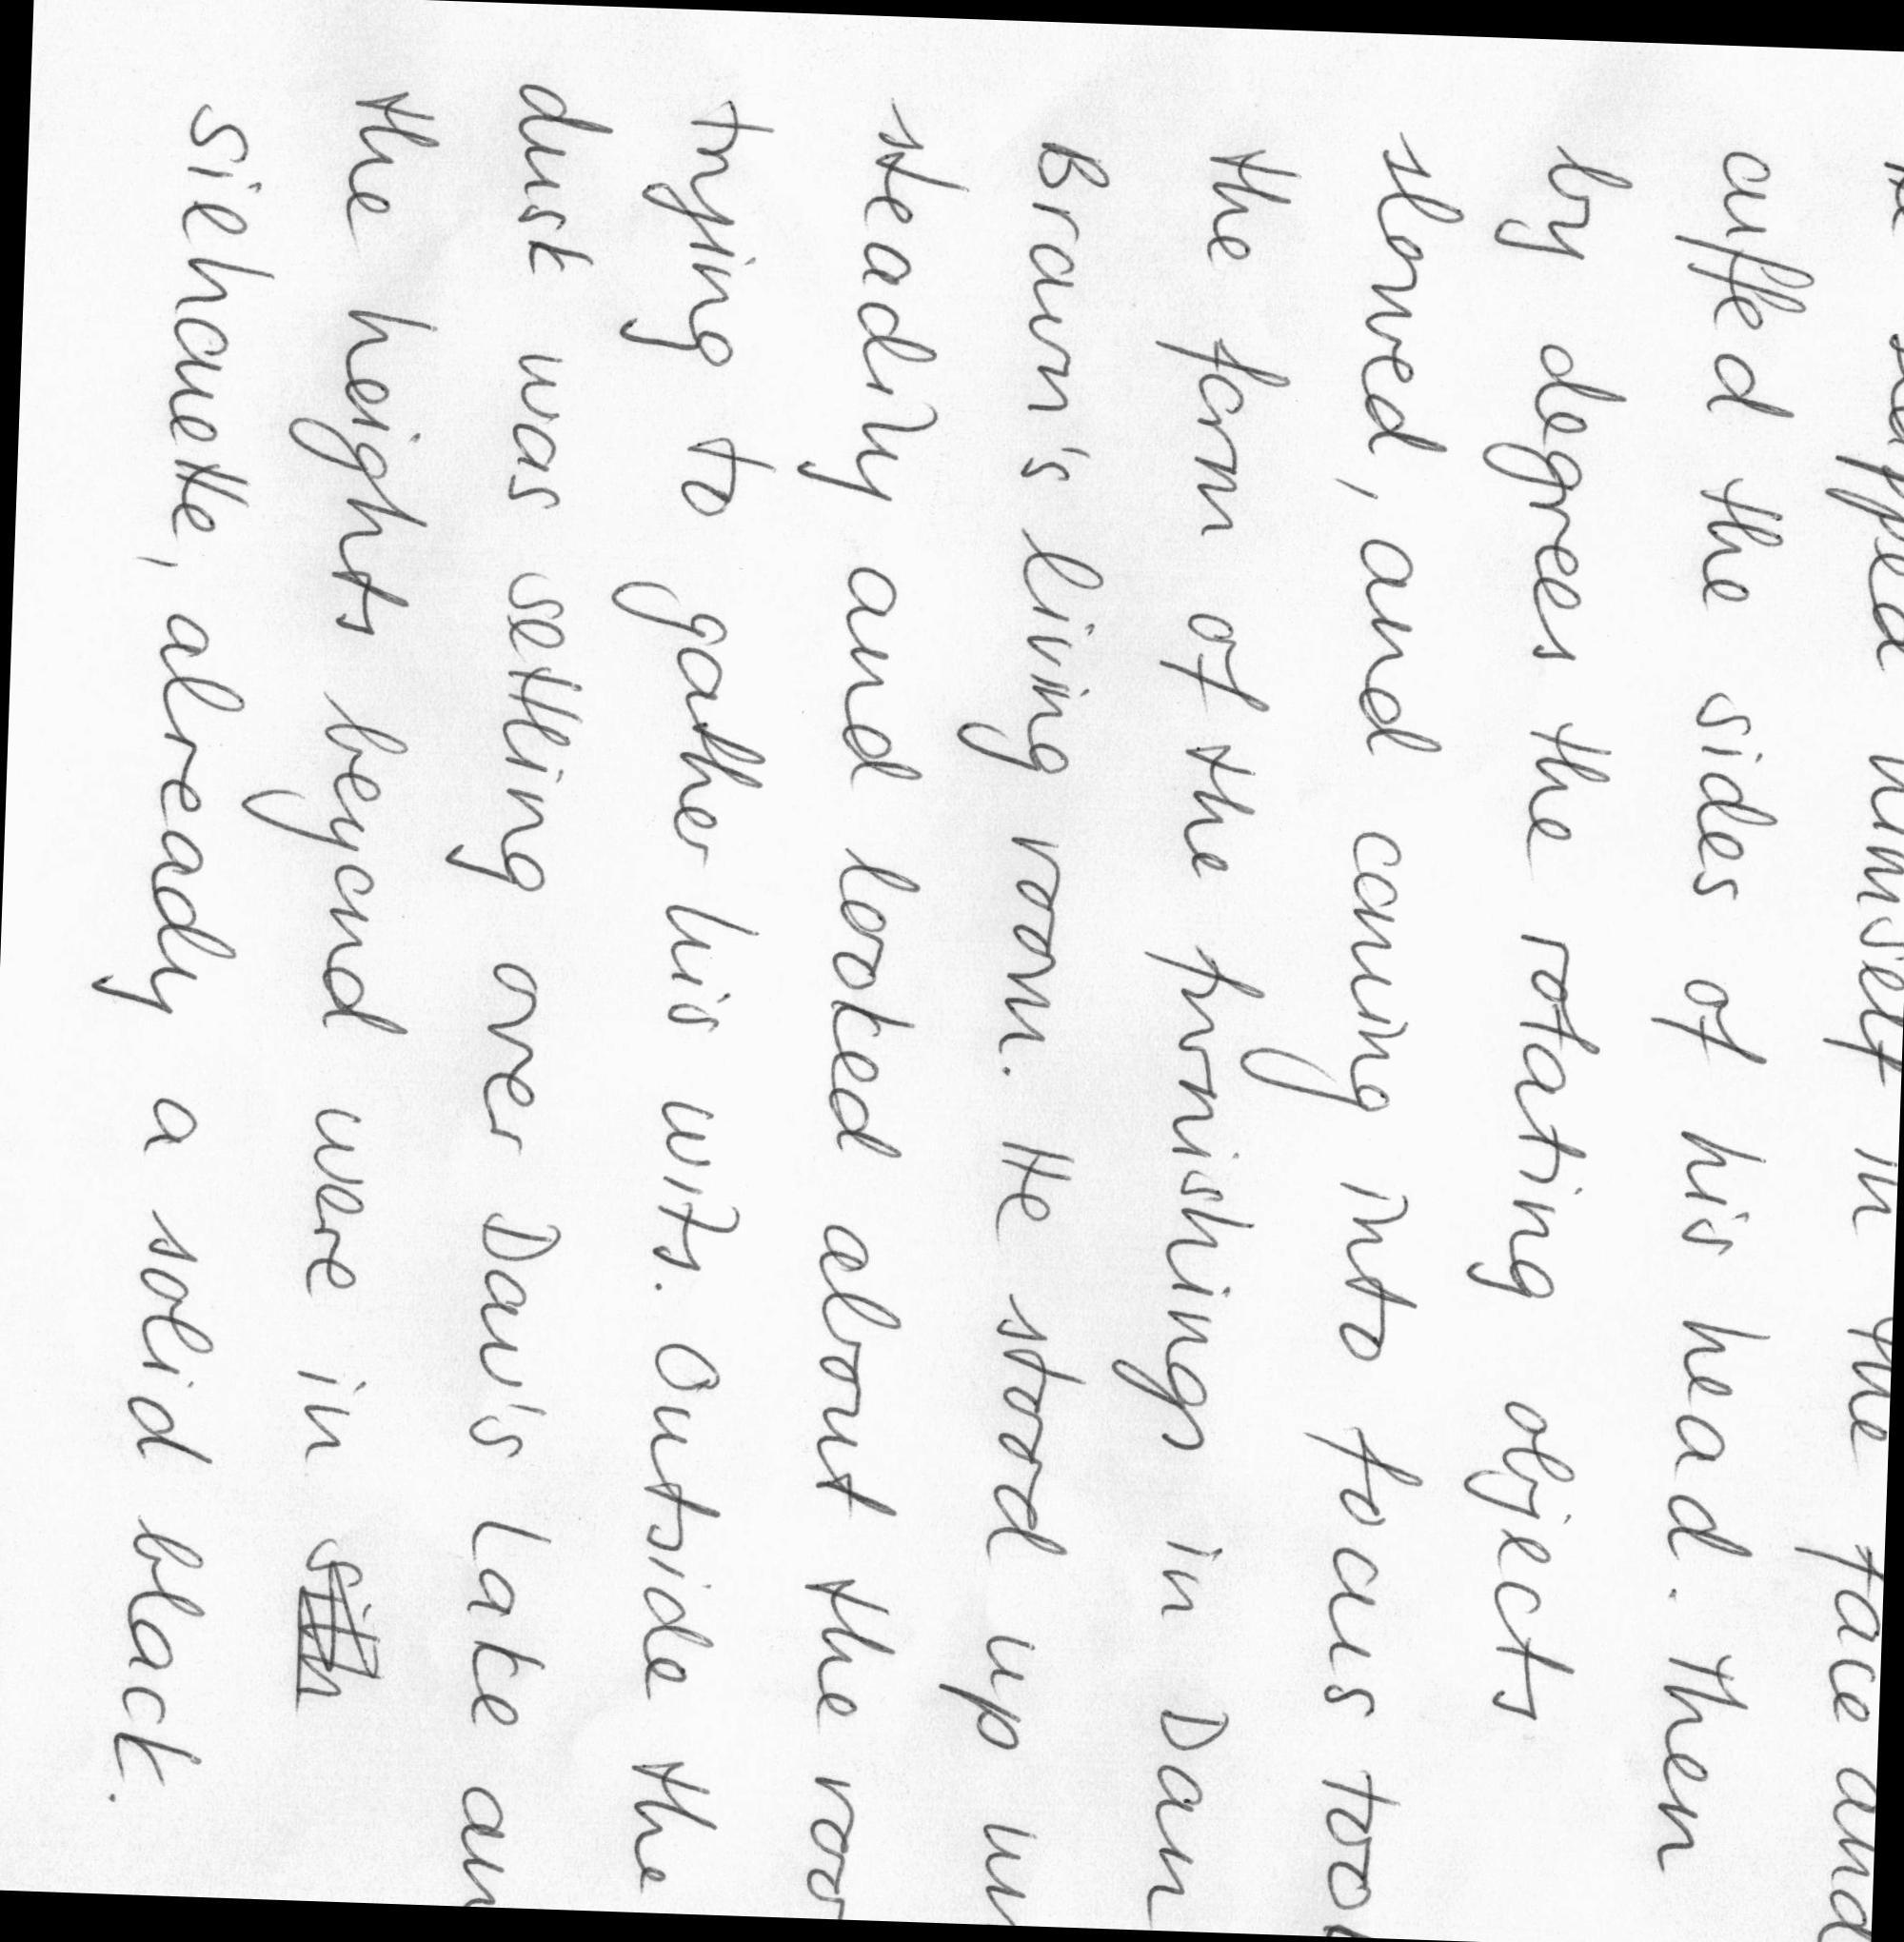 he slapped himself in the face and
cuffed the sides of his head. Then
by degrees the rotating objects
slowed, and coming into focus too
the form of the furnishings in Dan
Brawn's living room. He stood up un
steadily and looked about the roo
trying to gather his wits. Outside the
dusk was settling over Daw's Lake an
the heights beyond were in
siehouette, already a solid black.